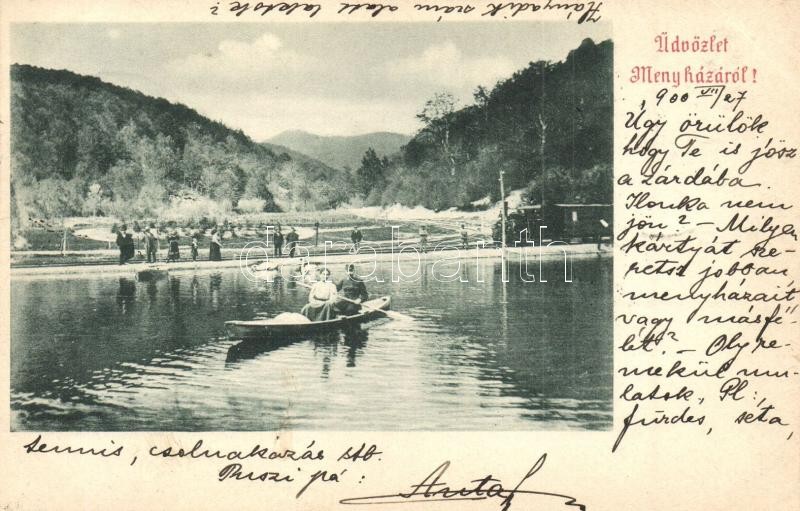 Hányadik szám alatt laktok?
Üdvözlet
Menyházáról!
900 VII/27
Úgy örülök
hogy Te is jösz
a zárdába.
Ilonka nem
jön? - Milyen
kártyát sze-
retsz jobban
menyházait
vagy másfé-
let? - Oly re-
mekül mu-
latok, Pl:,
fürdes, séta,
tennis, csolnakázás stb.
Puszi pá:
Anta
darabanth